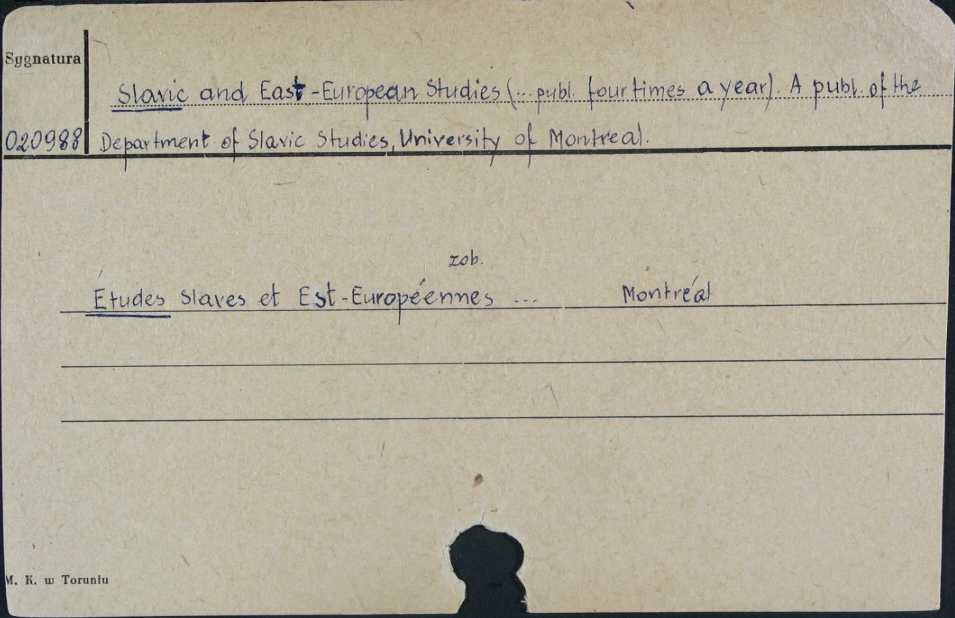 Sygnatura
Slavic and East-European Studies (... publ. four times a year). A publ. of the
020988 Department of Slavic Studies, University of Montreal.
zob.
Études Slaves et Est-Européennes ... Montréal
M. K. w Toruniu